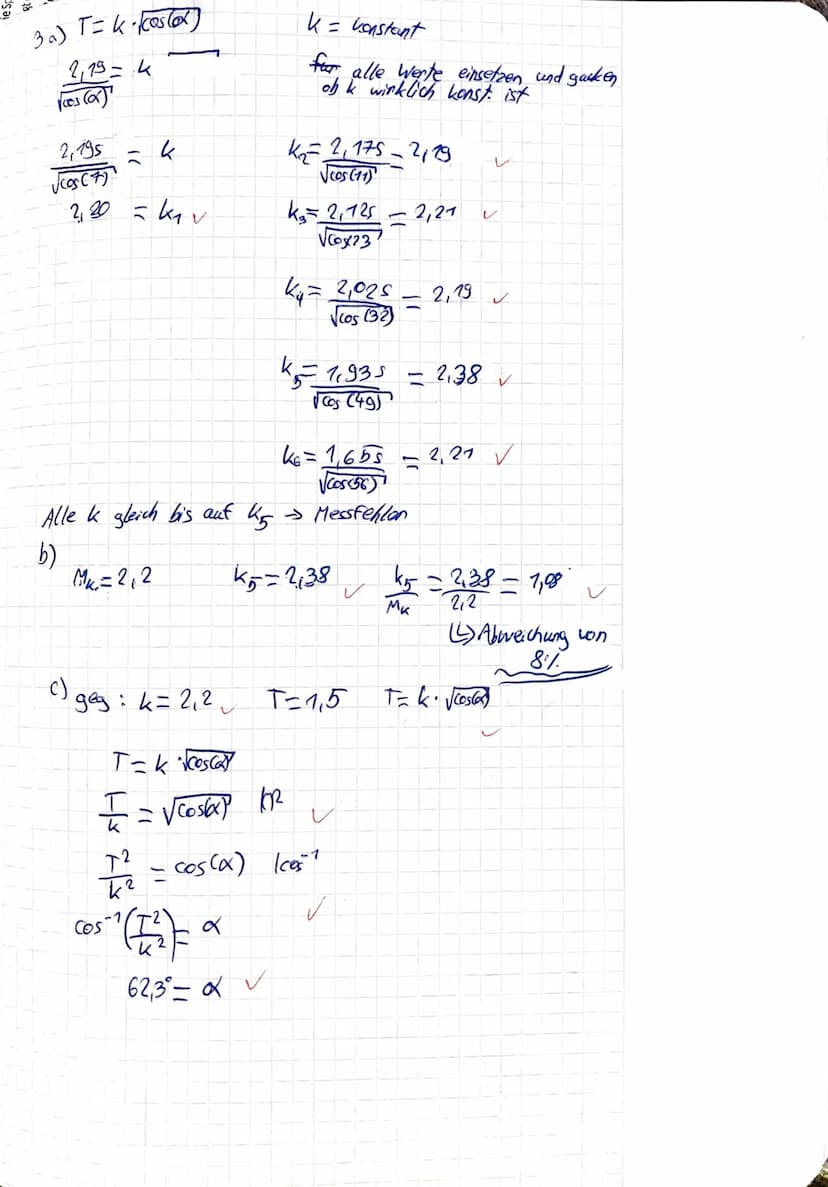 3a) T = k · √cos(α)    k = konstant
2,19/√cos(α) = k    alle Werte einsetzen und gucken
ob k wirklich konst. ist
2,19s/√cos(7) = k    k₂ = 2,17s/√cos(11) = 2,19 ✓
2,20 = k₁ ✓    k₃ = 2,12s/√cos23 = 2,21 ✓
k₄ = 2,02s/√cos(32) = 2,19 ✓
k₅ = 1,93s/√cos(49) = 2,38 ✓
k₆ = 1,65s/√cos(56) = 2,21 ✓
Alle k gleich bis auf k₅ → Messfehler
b)
Mₖ = 2,2    k₅ = 2,38 ✓    k₅/Mₖ = 2,38/2,2 = 1,08 ✓
↳ Abweichung von
8%
c) geg: k = 2,2 ✓    T = 1,5    T = k · √cos(α) ✓
T = k · √cos(α)
T/k = √cos(α)    |^2 ✓
T²/k² = cos(α)    |cos⁻¹
cos⁻¹(T²/k²) = α ✓
62,3° = α ✓